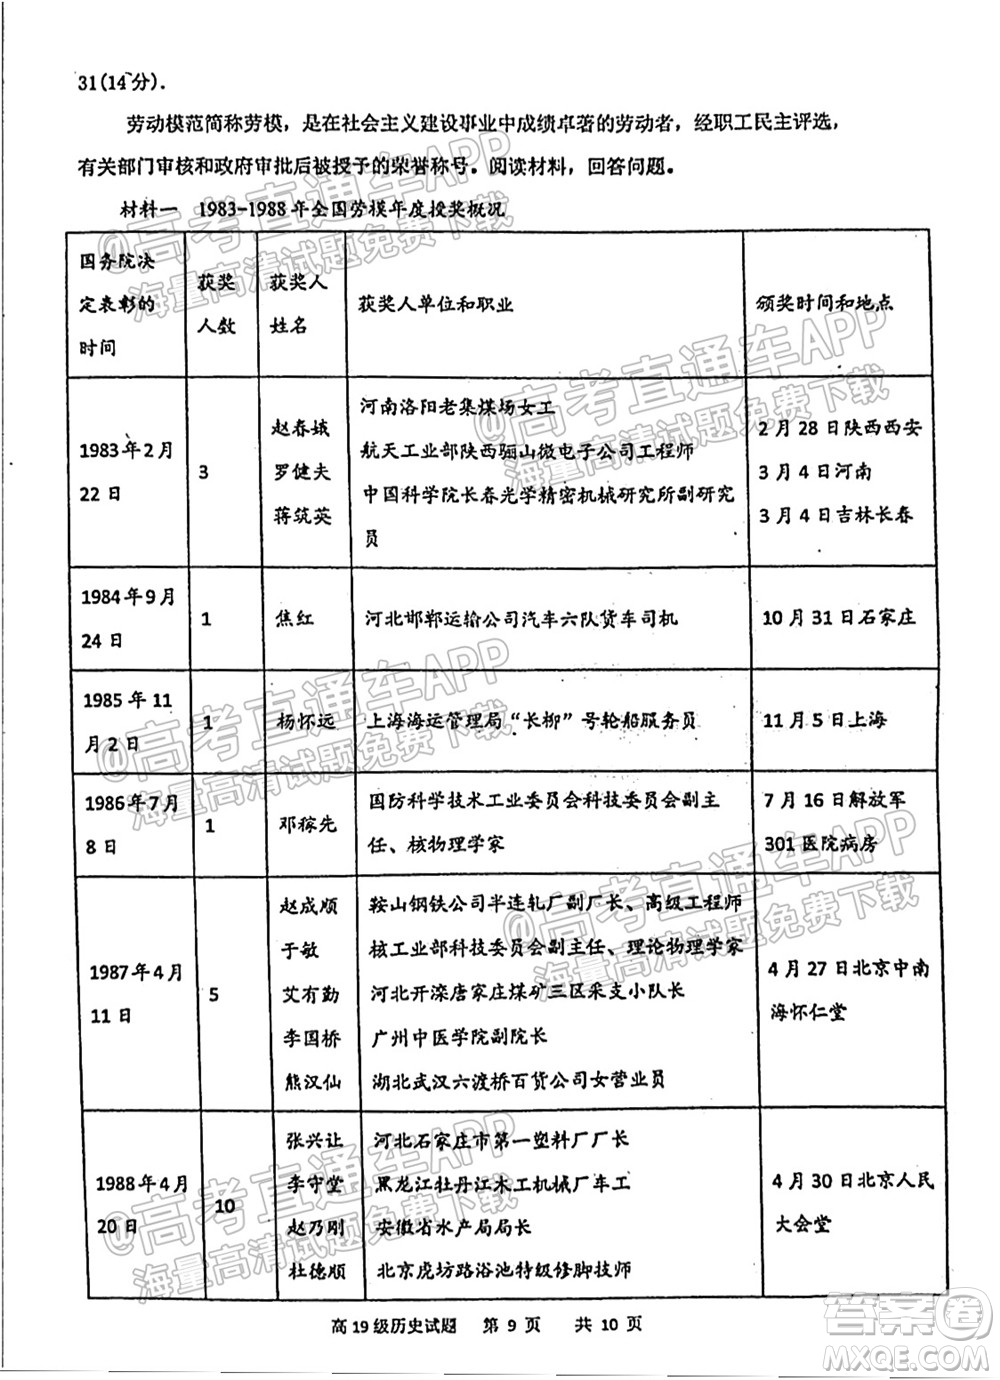 31(14分).
劳动模范简称劳模，是在社会主义建设事业中成绩卓著的劳动者，经职工民主评选，
有关部门审核和政府审批后被授予的荣誉称号。阅读材料，回答问题。
材料一 1983-1988年全国劳模年度授奖概况
国务院决
定表彰的
时间
获奖
人数
获奖人
姓名
获奖人单位和职业
颁奖时间和地点
1983年2月
22日
3
赵春娥
罗健夫
蒋筑英
河南洛阳老集煤场女工
航天工业部陕西骊山微电子公司工程师
中国科学院长春光学精密机械研究所副研究
员
2月28日陕西西安
3月4日河南
3月4日吉林长春
1984年9月
24日
1
焦红
河北邯郸运输公司汽车六队货车司机
10月31日石家庄
1985年11
月2日
1
杨怀远
上海海运管理局“长柳”号轮船服务员
11月5日上海
1986年7月
8日
1
邓稼先
国防科学技术工业委员会科技委员会副主
任、核物理学家
7月16日解放军
301医院病房
1987年4月
11日
5
赵成顺
于敏
艾有勤
李国桥
熊汉仙
鞍山钢铁公司半连轧厂副厂长、高级工程师
核工业部科技委员会副主任、理论物理学家
河北开滦唐家庄煤矿三区采支小队长
广州中医学院副院长
湖北武汉六渡桥百货公司女营业员
4月27日北京中南
海怀仁堂
1988年4月
20日
10
张兴让
李守堂
赵乃刚
杜德顺
河北石家庄市第一塑料厂厂长
黑龙江牡丹江木工机械厂车工
安徽省水产局局长
北京虎坊路浴池特级修脚技师
4月30日北京人民
大会堂
高19级历史试题 第9页 共10页
@高考直通车APP
海量高清试题免费下载
@高考直通车APP
海量高清试题免费下载
@高考直通车APP
海量高清试题免费下载
@高考直通车APP
海量高清试题免费下载
@高考直通车APP
海量高清试题免费下载
答案卷
MXQE.COM